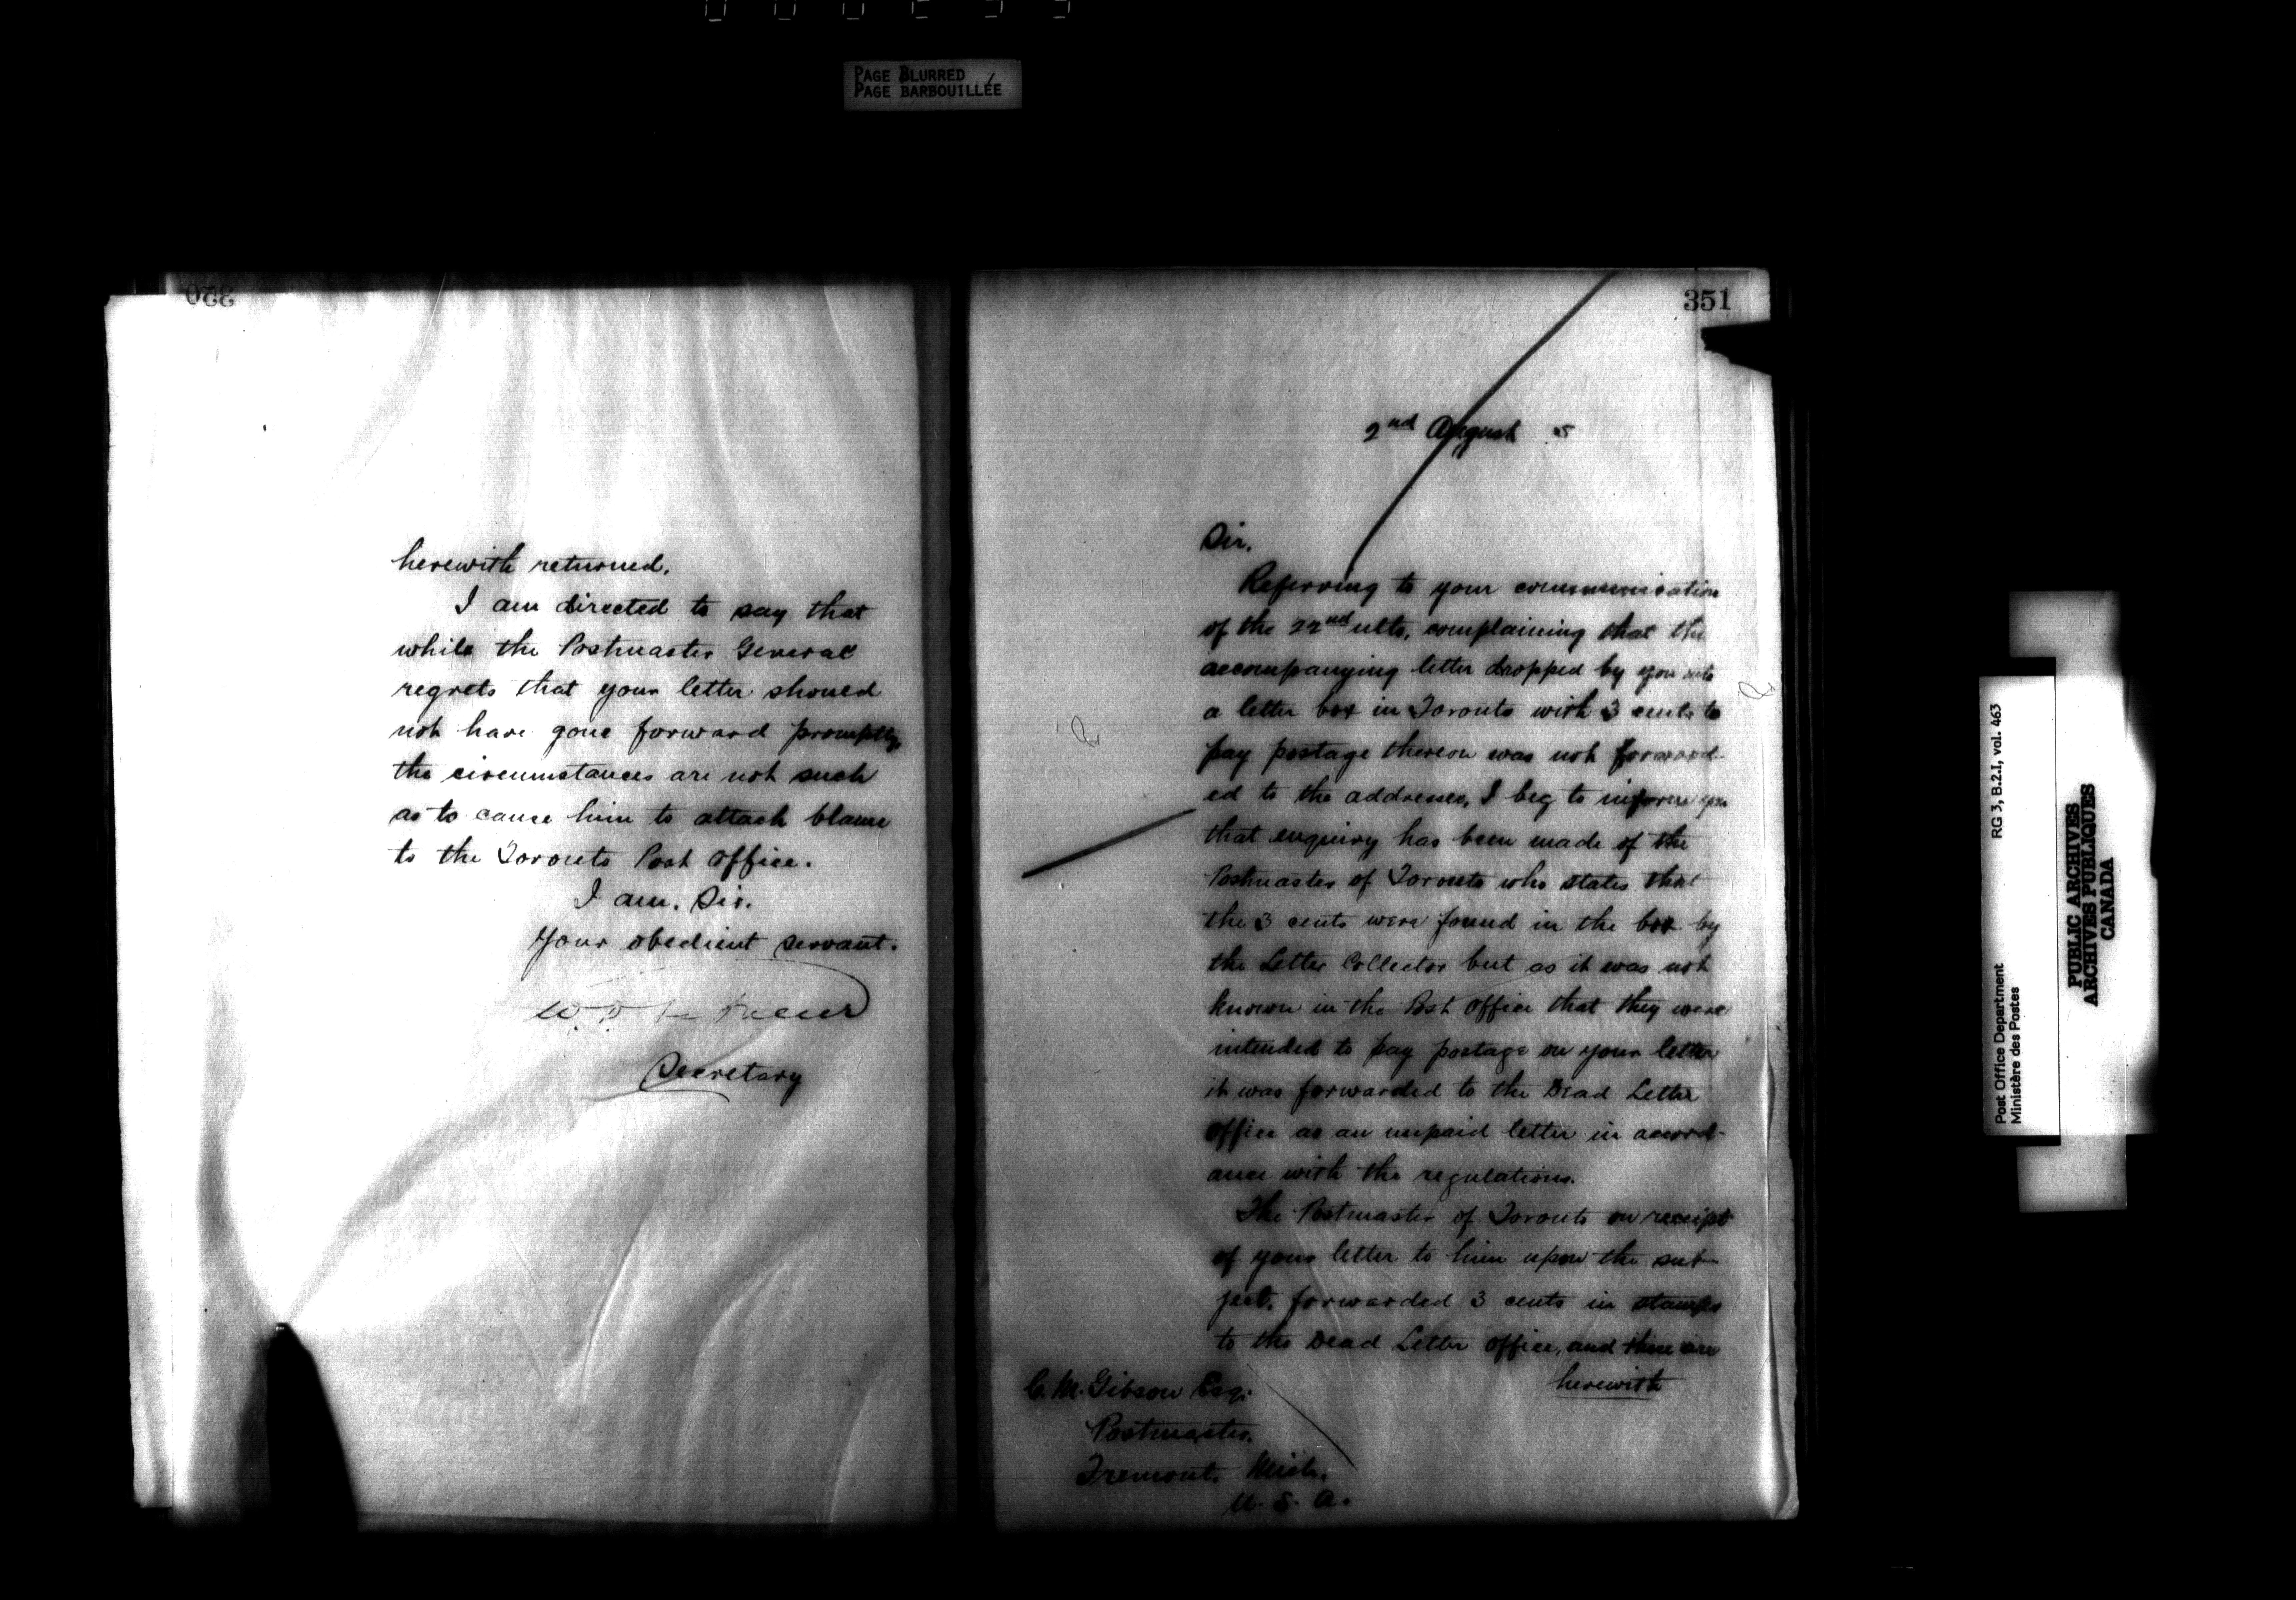 PAGE BLURRED
PAGE BARBOUILLÉE
herewith returned.
I am directed to say that
while the Postmaster General
regrets that your letter should
not have gone forward promptly
the circumstances are not such
as to cause him to attach blame
to the Toronto Post Office.
I am, Sir.
Your obedient servant.
Secretary
351
2nd August
Sir.
Referring to your communication
of the 22nd ulto, complaining that the
accompanying letter dropped by you into
a letter box in Toronto with 3 cents to
pay postage thereon was not forward-
ed to the addressee, I beg to inform you
that enquiry has been made of the
Postmaster of Toronto who states that
the 3 cents were found in the box by
the Letter Collector but as it was not
known in the Post Office that they were
intended to pay postage on your letter
it was forwarded to the Dead Letter
Office as an unpaid letter in accord-
ance with the regulations.
The Postmaster of Toronto on receipt
of your letter to him upon the sub-
ject, forwarded 3 cents in stamps
to the Dead Letter Office, and these are
herewith
C. M. Gibson Esq.
Postmaster.
Fremont, Mich.
U. S. A.
RG 3, B.2.I, vol. 463
Post Office Department
Ministère des Postes
PUBLIC ARCHIVES
ARCHIVES PUBLIQUES
CANADA